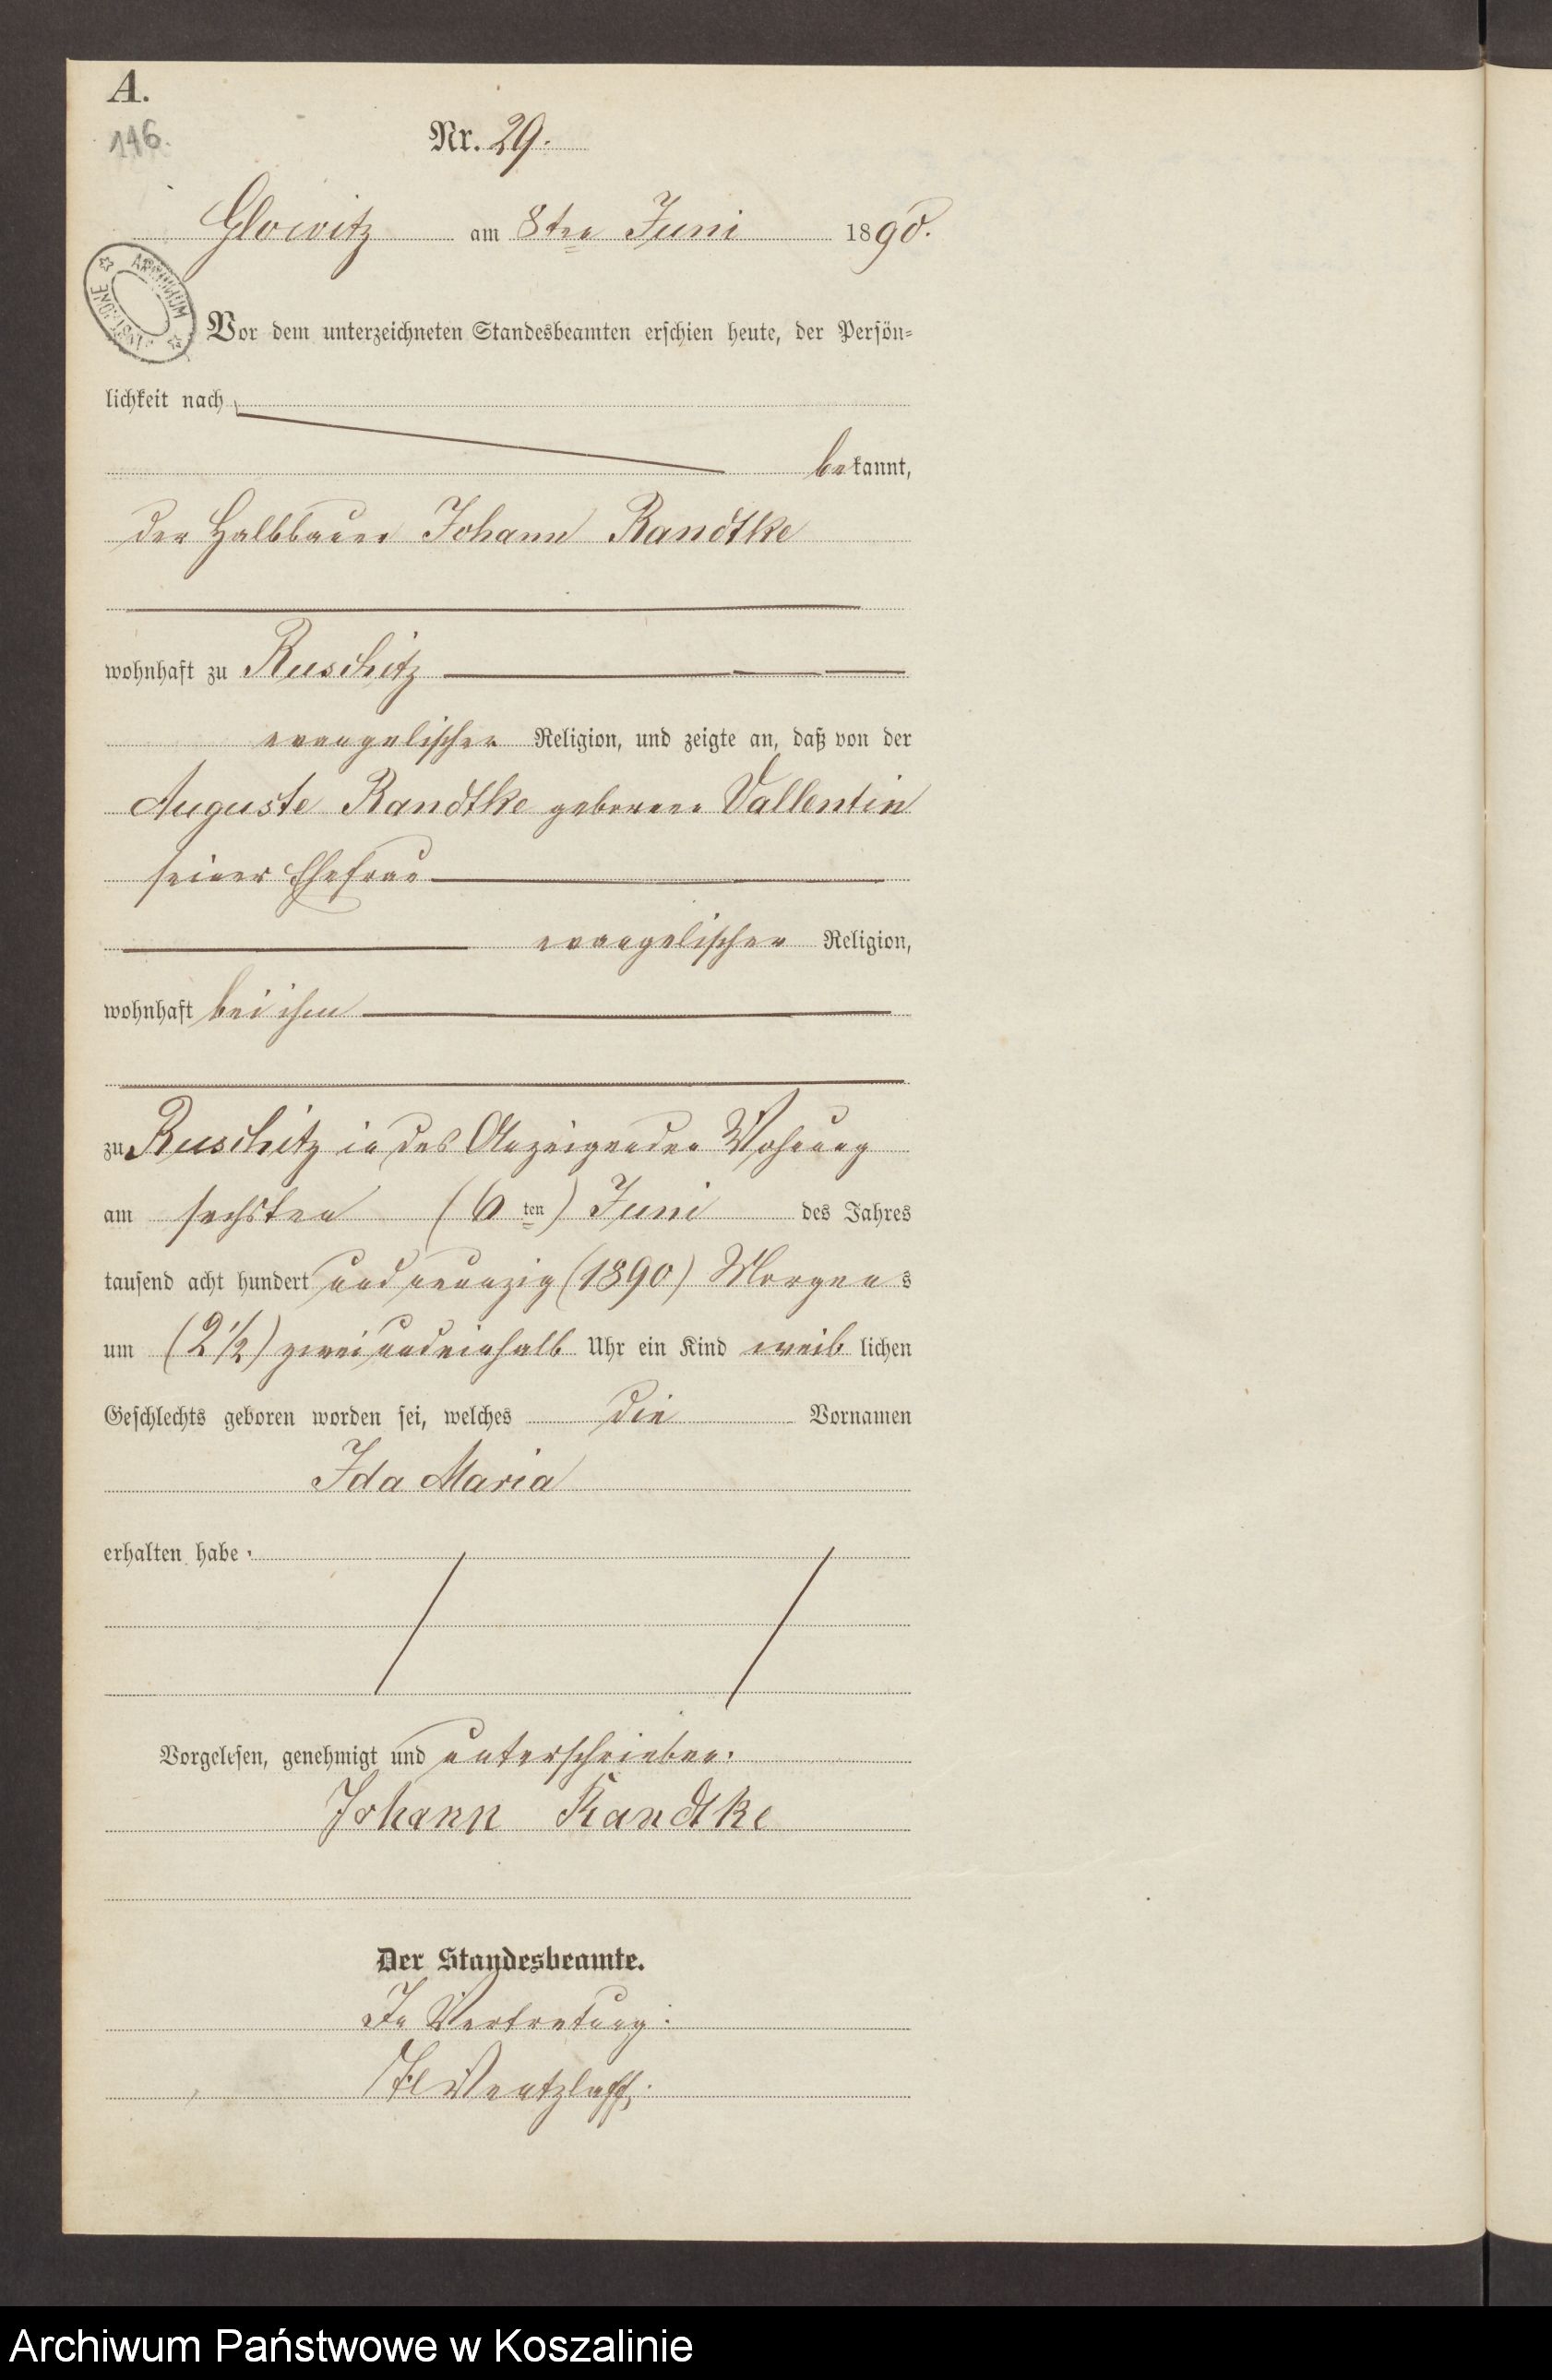 A.
146.
Nr. 29.
Glowitz am 8ten Juni 1890.
ARCHIWUM
Vor dem unterzeichneten Standesbeamten erschien heute, der Persön-
lichkeit nach
bekannt,
der Halbbauer Johann Randtke
wohnhaft zu Ruschitz
evangelischer Religion, und zeigte an, daß von der
Auguste Randtke geborenen Vallentin
seiner Ehefrau
evangelischer Religion,
wohnhaft bei ihm
zu Ruschitz in des Anzeigenden Wohnung
am sechsten (6ten) Juni des Jahres
tausend acht hundert und neunzig (1890) Morgens
um (2 1/2) zwei und einhalb Uhr ein Kind weiblichen
Geschlechts geboren worden sei, welches die Vornamen
Ida Maria
erhalten habe.
Vorgelesen, genehmigt und unterschrieben.
Johann Randtke
Der Standesbeamte.
In Vertretung:
Wentzlaff.
Archiwum Państwowe w Koszalinie